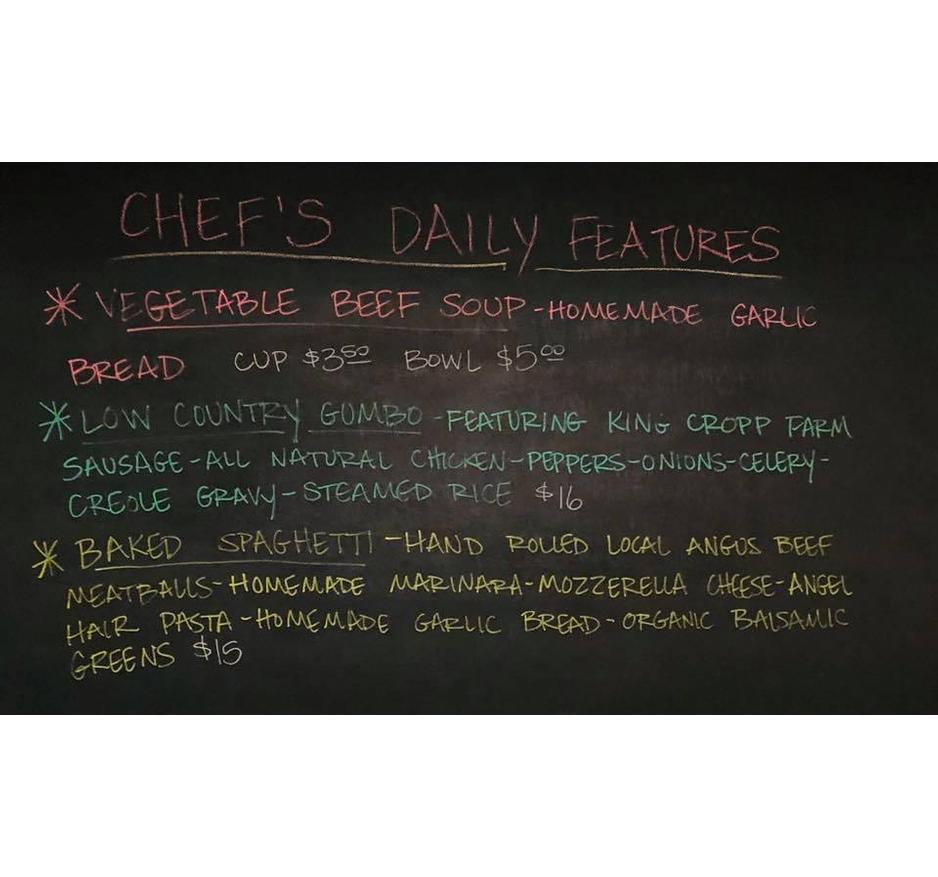 CHEF'S DAILY FEATURES
* VEGETABLE BEEF SOUP - HOMEMADE GARLIC
BREAD CUP $3.50 BOWL $5.00
* LOW COUNTRY GUMBO - FEATURING KING CROPP FARM
SAUSAGE - ALL NATURAL CHICKEN - PEPPERS - ONIONS - CELERY -
CREOLE GRAVY - STEAMED RICE $16
* BAKED SPAGHETTI - HAND ROLLED LOCAL ANGUS BEEF
MEATBALLS - HOMEMADE MARINARA - MOZZERELLA CHEESE - ANGEL
HAIR PASTA - HOMEMADE GARLIC BREAD - ORGANIC BALSAMIC
GREENS $15